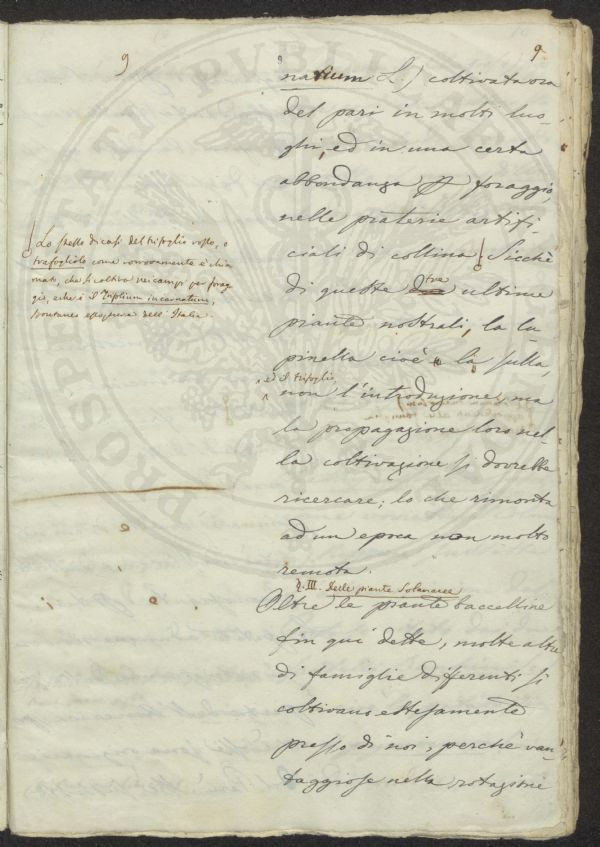 9
9
narium L.) coltivata ora
del pari in molti luo-
ghi, ed in una certa
abbondanza pr foraggio,
nelle praterie artifi-
ciali di collina. Sicchè
di queste tre ultime
piante nostrali, la lu-
pinella cioè la sulla,
ed il trifoglio
non l'introduzione, ma
la propagazione loro nel-
la coltivazione si dovrebbe
ricercare; lo che rimonta
ad un epoca non molto
remota.
§. III. Delle piante Solanacee
Oltre le piante baccelline
fin qui dette, molte altre
di famiglie differenti si
coltivano estesamente
presso di noi, perchè van-
taggiose nella rotazione
Lo stesso dicasi del trifoglio rosso, o
trafogliolo come comunemente è chia-
mato, che si coltiva nei campi per forag-
gio, e che è il Trifolium incarnatum,
spontaneo dell'Italia.
PROSPERITATI PUBLICAE